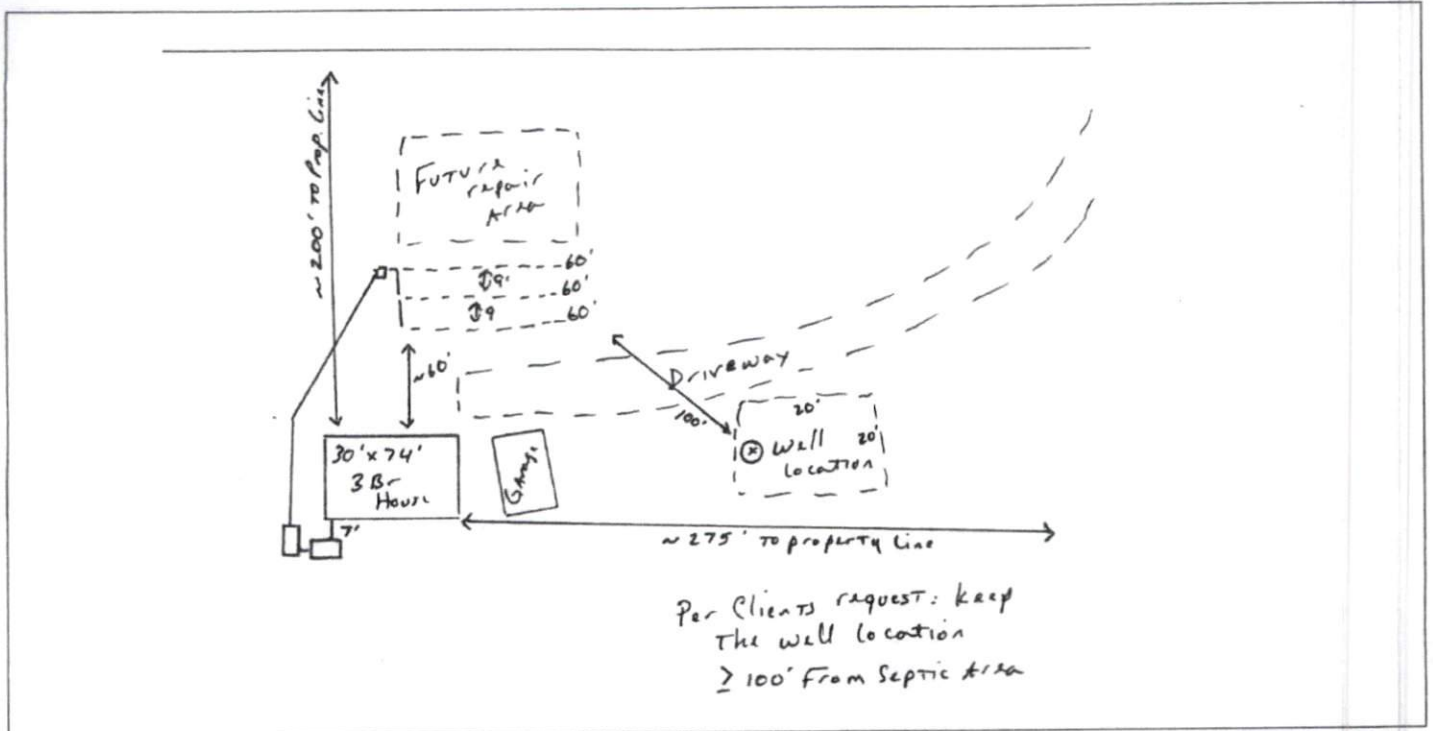 ~200' To Prop. Line
Future
repair
Area
60'
9'
60'
9
60'
~60'
Driveway
100'
20'
20'
Well
location
30' x 74'
3 Br
House
Garage
7'
~275' To property Line
Per Clients request: keep
The well location
≥ 100' From Septic Area